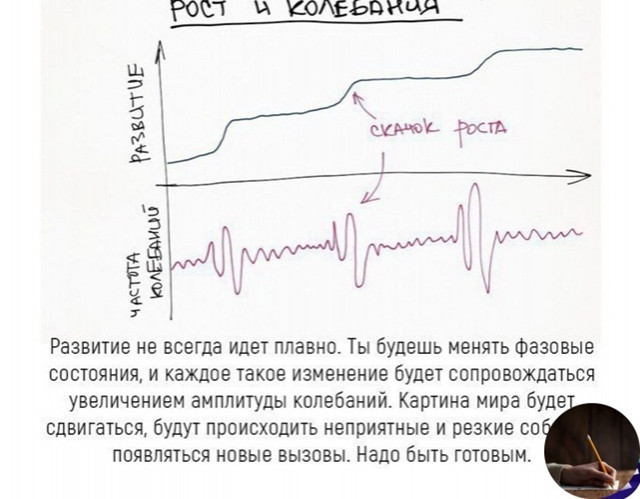 РОСТ И КОЛЕБАНИЯ
РАЗВИТИЕ
СКАЧОК РОСТА
ЧАСТОТА
КОЛЕБАНИЙ
Развитие не всегда идет плавно. Ты будешь менять фазовые
состояния, и каждое такое изменение будет сопровождаться
увеличением амплитуды колебаний. Картина мира будет
сдвигаться, будут происходить неприятные и резкие
появляться новые вызовы. Надо быть готовым.